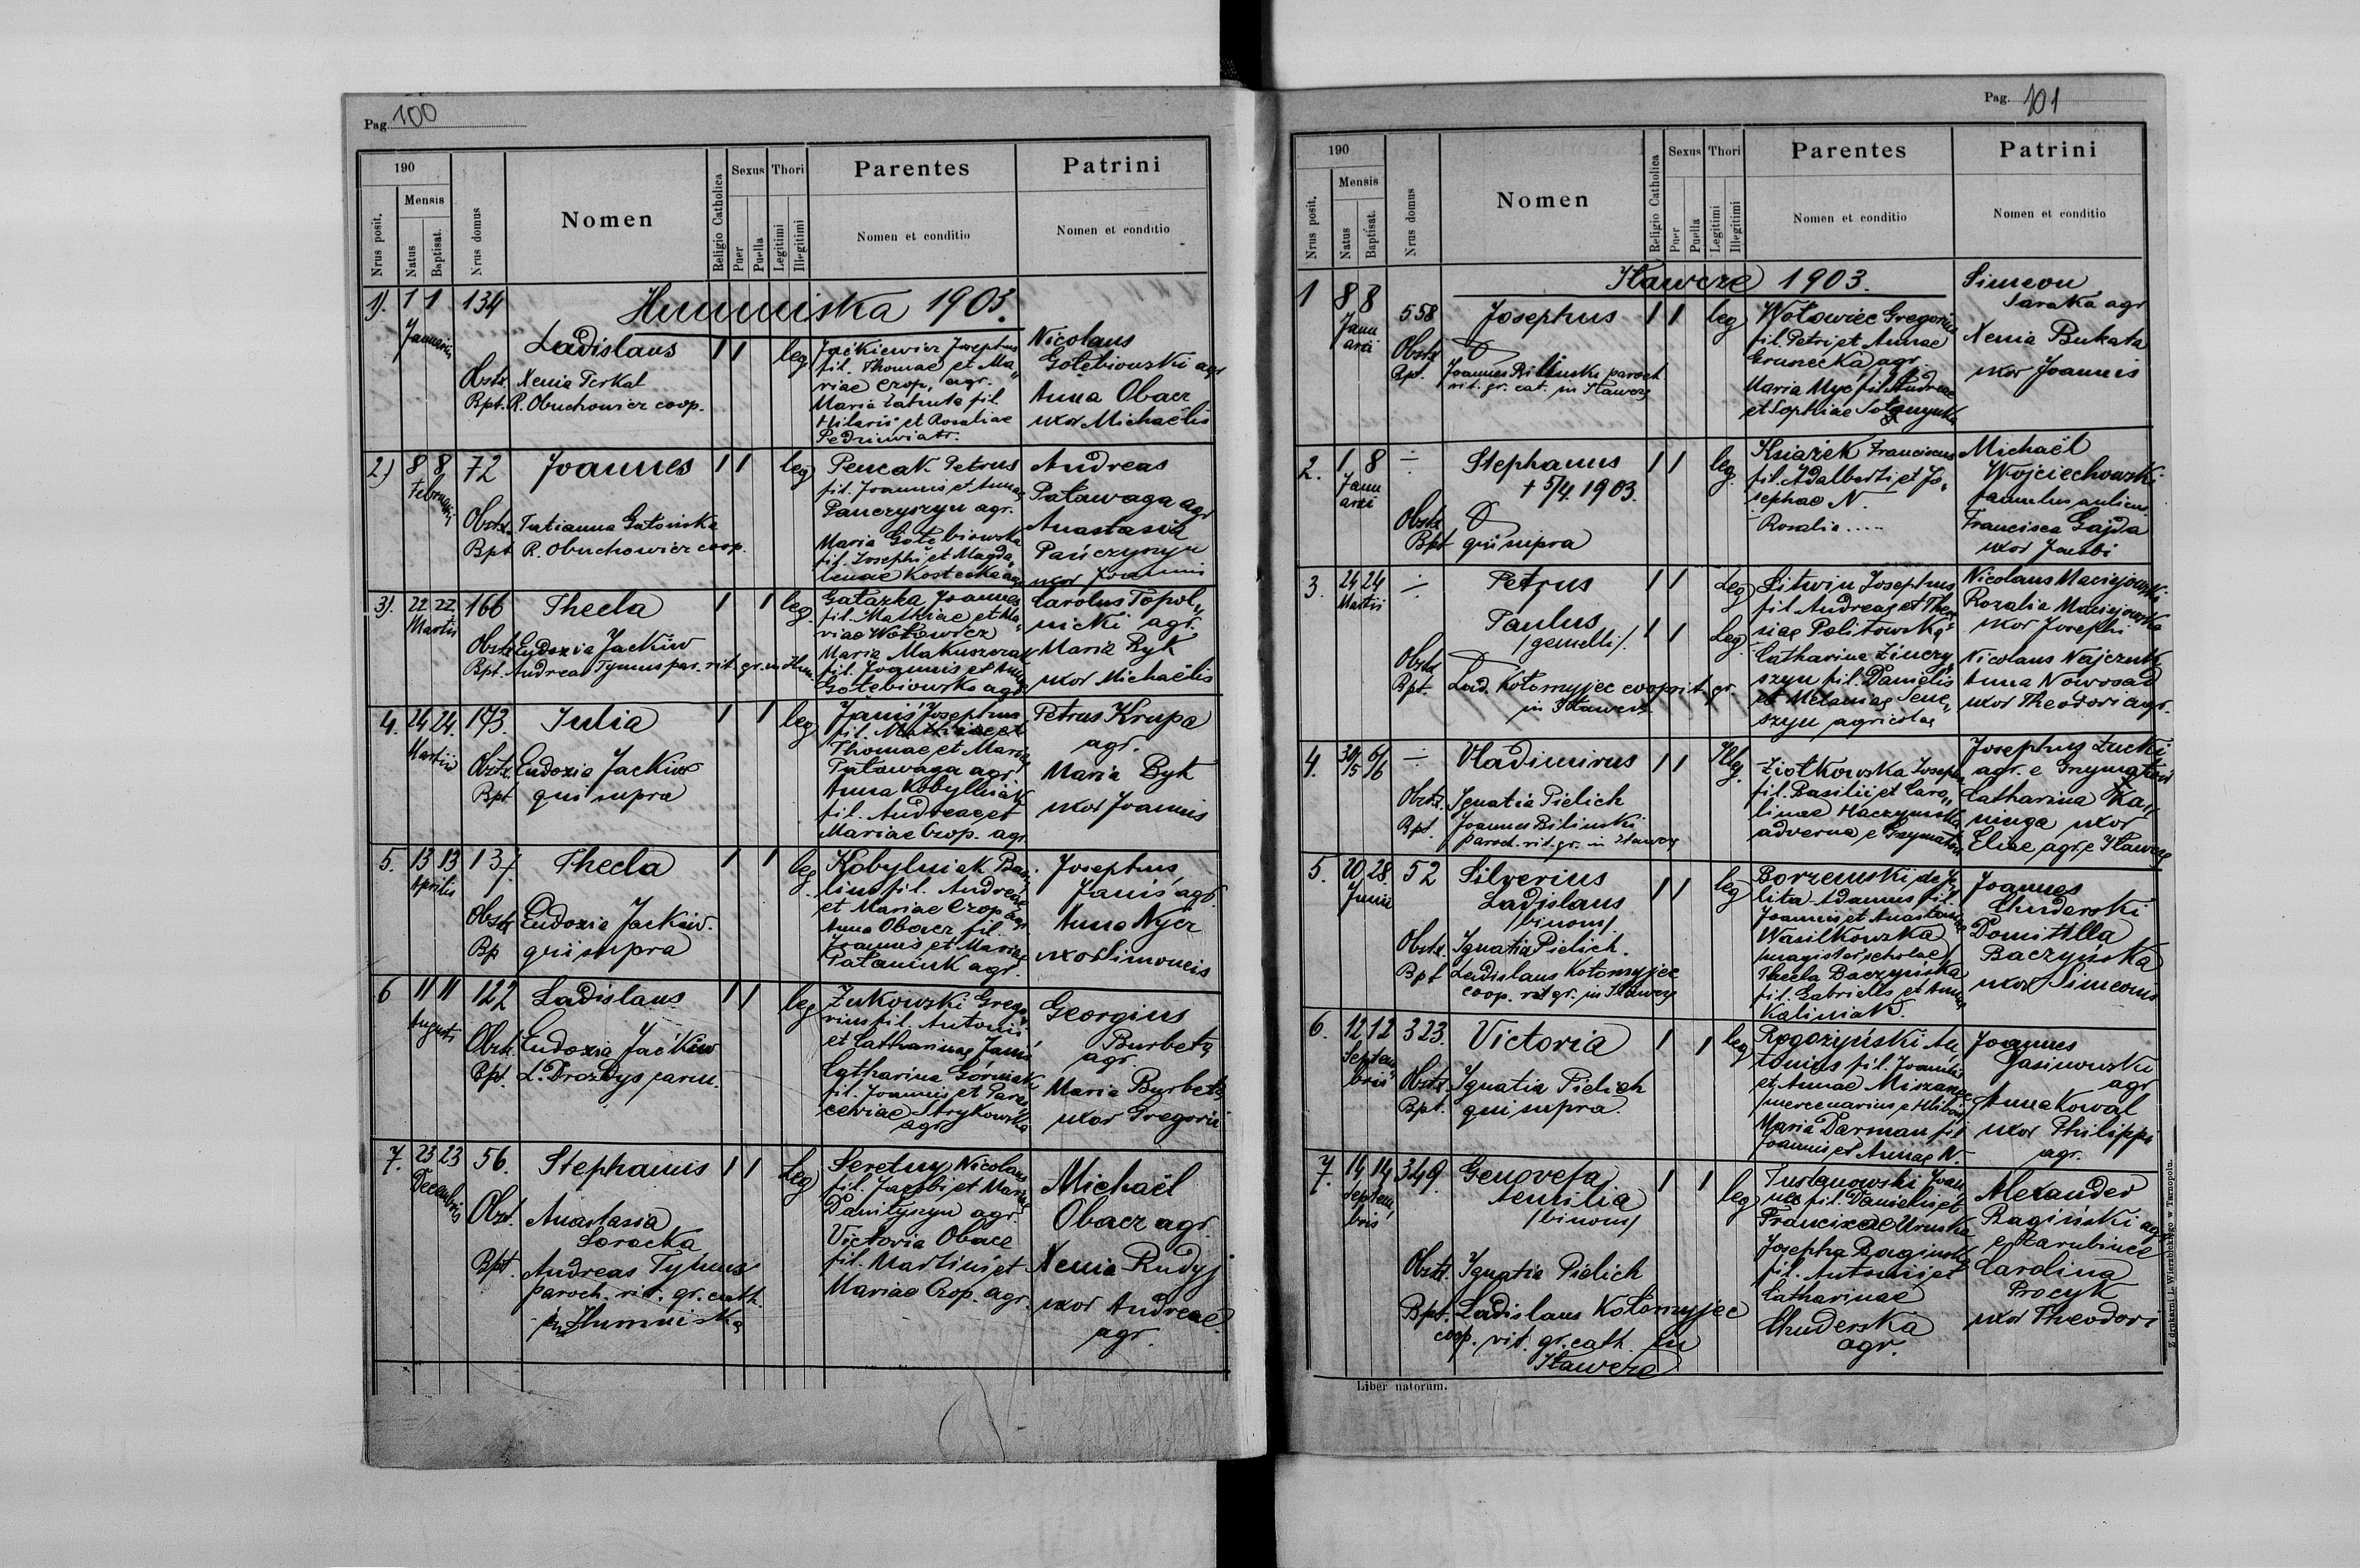 Pag. 100
190
Nrus posit.
Mensis
Natus
Baptisat.
Nrus domus
Nomen
Religio Catholica
Sexus
Puer
Puella
Thori
Legitimi
Illegitimi
Parentes
Nomen et conditio
Patrini
Nomen et conditio
Humniska 1903.
1). 1 1 134
Januarii
Ladislaus 1 1 leg
Obstr. Xenia Perkal
Bpt. R. Obuchowicz coop.
Jackiewicz Josephus
fil. Thomae et Ma„
riae Czop, agr.
Maria Zatruta fil
Hilarii et Rosaliae
Nicolaus
Gołębiowski agr
Anna Obacz
uxor Michaëlis
2) 8 8 72 Joannes 1 1 leg
Februarii
Obstr. Tatianna
Bpt R. Obuchowicz coop.
Pencak Petrus
fil. Joannis et Annae
Panczyszyn agr.
Maria Gołębiowska
fil. Josephi et Magda„
lenae Kostecka agr
Andreas
Patawaga agr
Anastasia
Pańczyszyn
uxor Joannis
3). 22 22 166 Thecla 1 1 leg.
Martii
Obstr Eudoxia Jackiw
Bpt. Andreas Tymus par. rit. gr. in Hum.
Gałązka Joannes
fil. Mathiae et Ma„
riae Wołowicz
Maria Makuszczak
fil. Joannis et Annae
Gołębiowska agr.
Carolus Topol„
nicki agr.
Maria Byk
uxor Michaëlis
4. 24 24. 173. Julia 1 1 leg
Martii
Obstr. Eudoxia Jackiw
Bpt qui supra
Janiś Josephus
fil. Mathiae et
Thomae et Mariae
Patawaga agr.
Anna Kobylniak
fil. Andreae et
Mariae Czop. agr.
Petrus Krupa
agr.
Maria Byk
uxor Joannis
5. 13 13 137 Thecla 1 1 leg
Aprilis
Obstr Eudoxia Jackiw.
Bp qui supra
Kobylniak Basi
lius fil. Andreae
et Mariae Czop agr
Anna Obacz fil.
Joannis et Mariae
Pataniuk agr.
Josephus
Janiś agr.
Anna Nycz
uxor Simoneis
6 11 11 122 Ladislaus 1 1 leg
Augusti
Obstr. Eudoxia Jackiw
Bpt. L. Drozdys carm.
Żukowski Grego
rius fil. Antonii
et Catharinae Janiś
Catharina Górniak
fil. Joannis et Paras
ceviae Strykowska
agr
Georgius
Burbeta
agr.
Maria Burbeta
uxor Gregorii
7. 23 23 56. Stephanus 1 1 leg
Decembris
Obst. Anastasia
Soracka
Bpt. Andreas Tymus
paroch. rit. gr. cath.
in Humniska
Seretny Nicolaus
fil. Jacobi et Mariae
Daniłyszyn agr.
Victoria Obacz
fil. Martini et
Mariae Czop. agr.
Michaël
Obacz agr.
Xenia Rudyj
uxor Andreae
agr.
Pag. 101
190
Nrus posit.
Mensis
Natus
Baptisat.
Nrus domus
Nomen
Religio Catholica
Sexus
Puer
Puella
Thori
Legitimi
Illegitimi
Parentes
Nomen et conditio
Patrini
Nomen et conditio
Iławcze 1903.
1 8 8 558 Josephus 1 1 leg
Janu
arii
Obstr
Bpt. Joannes Biliński paroch
rit. gr. cat. in Iławcze
Wołowiec Gregorius
fil. Petri et Annae
Grunecka agr.
Maria Myc fil. Andreae
et Sophiae
Simeon
Saraka agr
Xenia Bukata
uxor Joannis
2. 1 8 Stephanus 1 1 leg.
† 5/4 1903.
Janu
arii
Obstr
Bpt qui supra
Książek Franciscus
fil. Adalberti et Jo„
sephae N.
Rosalia .....
Michaël
Wojciechowski
famulus aulicus
Francisca Gajda
uxor Jacobi
3. 24 24 Petrus 1 1 leg
Martii
Paulus
/gemelli/. 1 1 leg
Obstr
Bpt. Lad. Kołomyjec coop rit. gr.
in Iławcze
Litwin Josephus
fil Andreae et There
siae Politowska
Catharina Zinczy
szyn fil. Danielis
et Melaniae Sene„
szyn agricolae
Nicolaus Maciejowski
Rozalia Maciejowska
uxor Josephi
Nicolaus Najczuk
Anna Nowosad
uxor Theodori agr.
4. 30/5 6/6 Vladimirus 1 1 Illeg.
Obstr. Ignatia Pielich
Bpt. Joannes Biliński
paroch. rit. gr. in Iławcze
Ziółkowska Josepha
fil. Basilii et Caro„
linae Haczynska
adverna e Grzymałów
Josephus Łucki
agr. e Grzymałów
Catharina Ka„
ninga uxor
Eliae agr. e Iławcze
5. 20 28. 52 Silverius 1 1 leg
Junii
Ladislaus
/binom/
Obstr. Ignatia Pielich.
Bpt Ladislaus Kołomyjec
coop. rit gr. in Iławcze
Borzemski de Je
lita Adamus fil.
Joannis et Anastasiae
Wasilkowska
/magister scholae/
Thecla Baczyńska
fil. Gabrielis et Annae
Kaliniak.
Joannes
Chuderski
Domitilla
Baczyńska
uxor Simeonis
6. 12 12 323. Victoria 1 1 leg
Septem
bris
Obstr. Ignatia Pielich
Bpt. qui supra.
Rogożyński An
tonius fil. Joannis
et Annae
/mercenarius e Hlibów/
Maria Darman fil
Joannis et Annae N.
Joannes
Jasinowski
agr
Anna Kowal
uxor Philippi
agr.
7. 14 14 349. Genovefa 1 1 leg
Septem„
bris
Aemilia
/binom/
Obstr. Ignatia Pielich
Bpt. Ladislaus Kołomyjec
coop. rit. gr. cath. in
Iławcze
Tustanowski Joan
nes fil. Danielis et
Franciscae Uruska
Josepha Ragińska
fil. Antonii et
Catharinae
Chuderska
agr.
Alexander
Ragiński agr
e Zarubińce
Carolina
Procyk
uxor Theodori
Liber natorum.
Z drukarni L. Wierzbickiego w Tarnopolu.